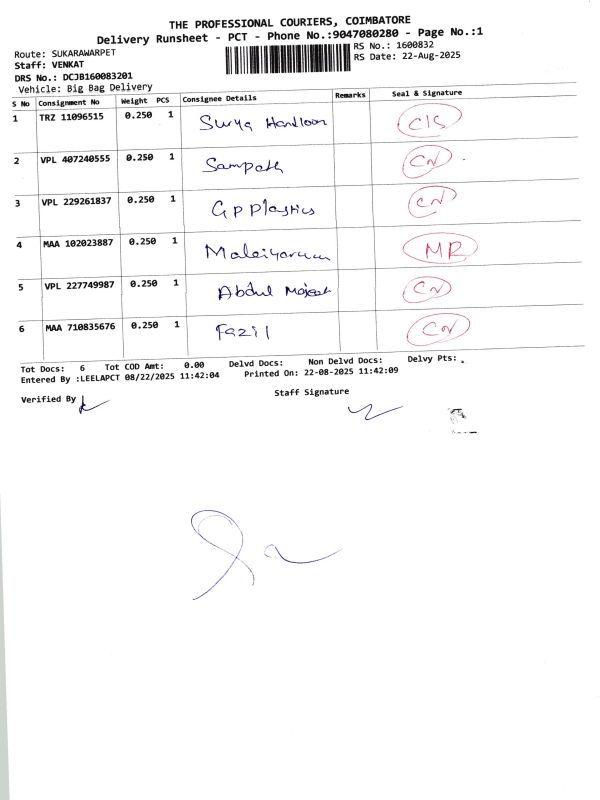 THE PROFESSIONAL COURIERS, COIMBATORE
Delivery Runsheet - PCT - Phone No.:9047080280 - Page No.:1
Route: SUKARAWARPET RS No.: 1600832
Staff: VENKAT RS Date: 22-Aug-2025
DRS No.: DCJB160083201
Vehicle: Big Bag Delivery
S No Consignment No Weight PCS Consignee Details Remarks Seal & Signature
1 TRZ 11096515 0.250 1 Surya Handloom C/S
2 VPL 407240555 0.250 1 Sampath CN
3 VPL 229261837 0.250 1 G P Plastics CN
4 MAA 102023887 0.250 1 MR
5 VPL 227749987 0.250 1 Abdul Majeeth CN
6 MAA 710835676 0.250 1 Fazil CN
Tot Docs: 6 Tot COD Amt: 0.00 Delvd Docs: Non Delvd Docs: Delvy Pts:
Entered By :LEELAPCT 08/22/2025 11:42:04 Printed On: 22-08-2025 11:42:09
Verified By Staff Signature